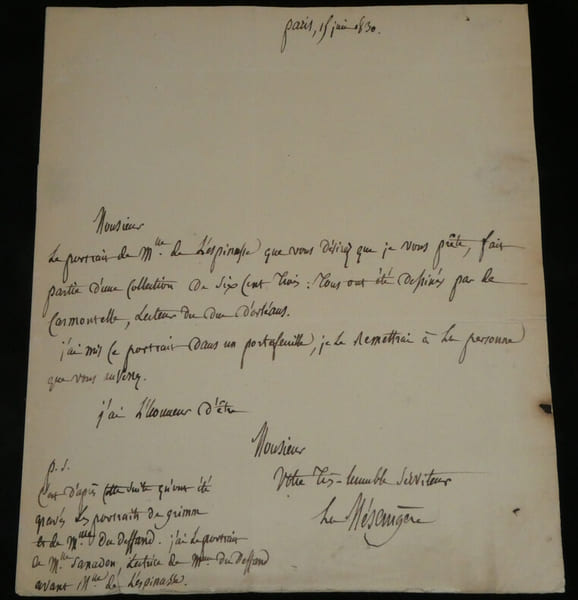 Paris, 15 juin 1830.
Monsieur
Le portrait de Mlle. de L'éspinasse que vous désirez que je vous prête, fait
partie d'une Collection de Six Cent Trois : Tous ont été dessinés par de
Carmontelle, Lecteur du duc d'orléans.
j'ai mis Ce portrait dans un portefeuille, je le remettrai à la personne
que vous enverrez.
j'ai L'honneur d'être
Monsieur
Votre Très-humble Serviteur
La Mésangère
p. s.
C'est d'après Cette suite qu'ont été
gravés Les portraits de grimm
et de Mme du deffand. j'ai Le portrait
de Mlle Sanadon, Lectrice de Mme du Deffand
avant Mlle de L'éspinasse.